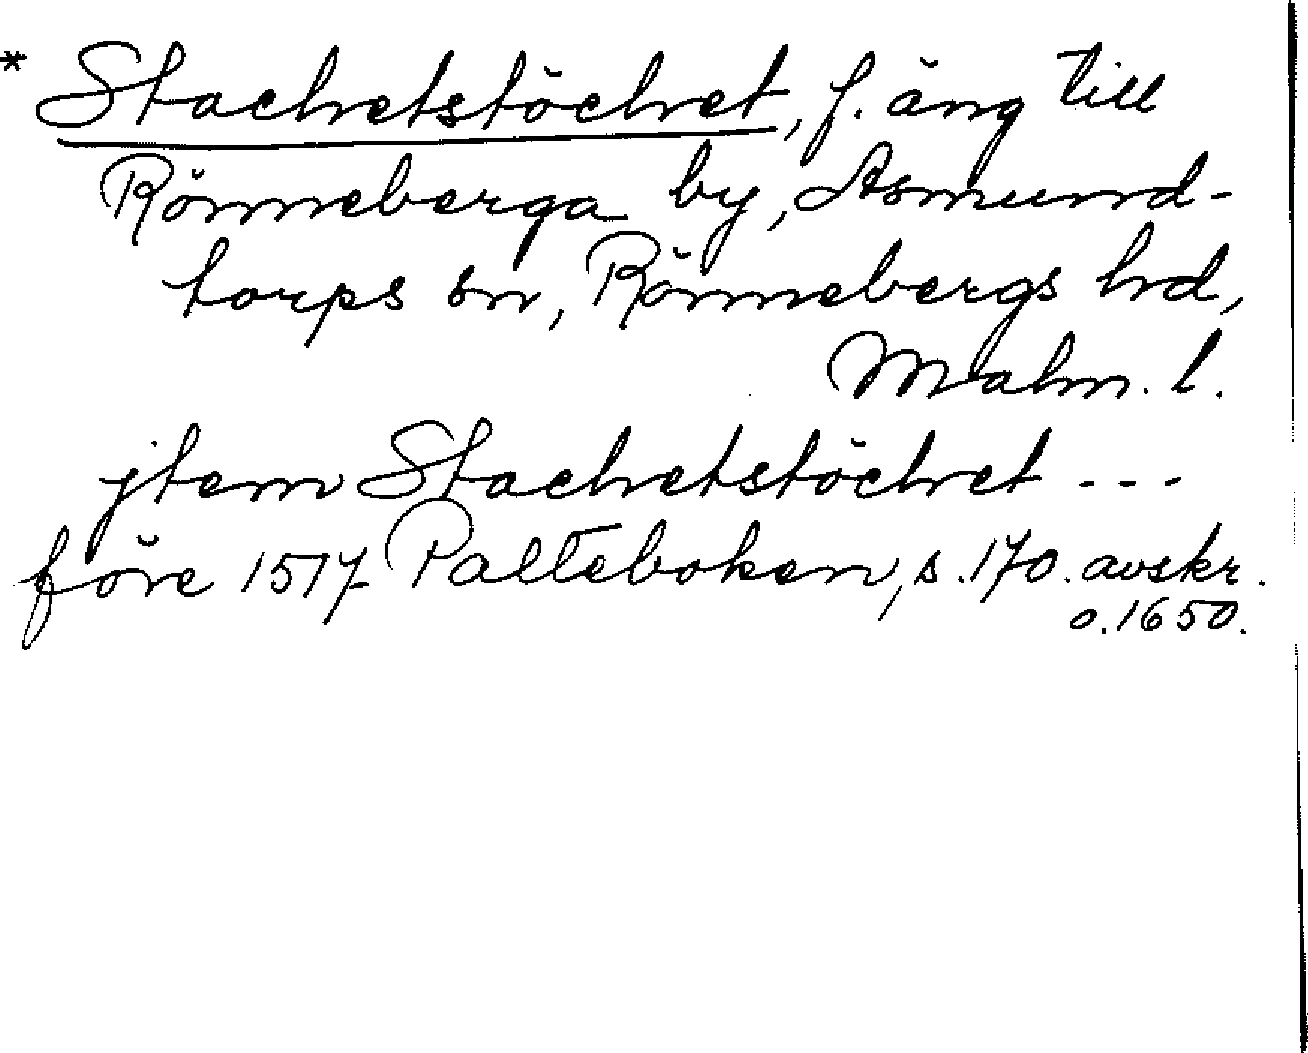 * Stachetstöchet, f. äng till
Rönneberga by, Asmund-
torps sn, Rönnebergs hd,
Malm. l.
jtem Stachetstöchet ---
före 1517 Palteboken, s. 170. avskr.
o. 1650.